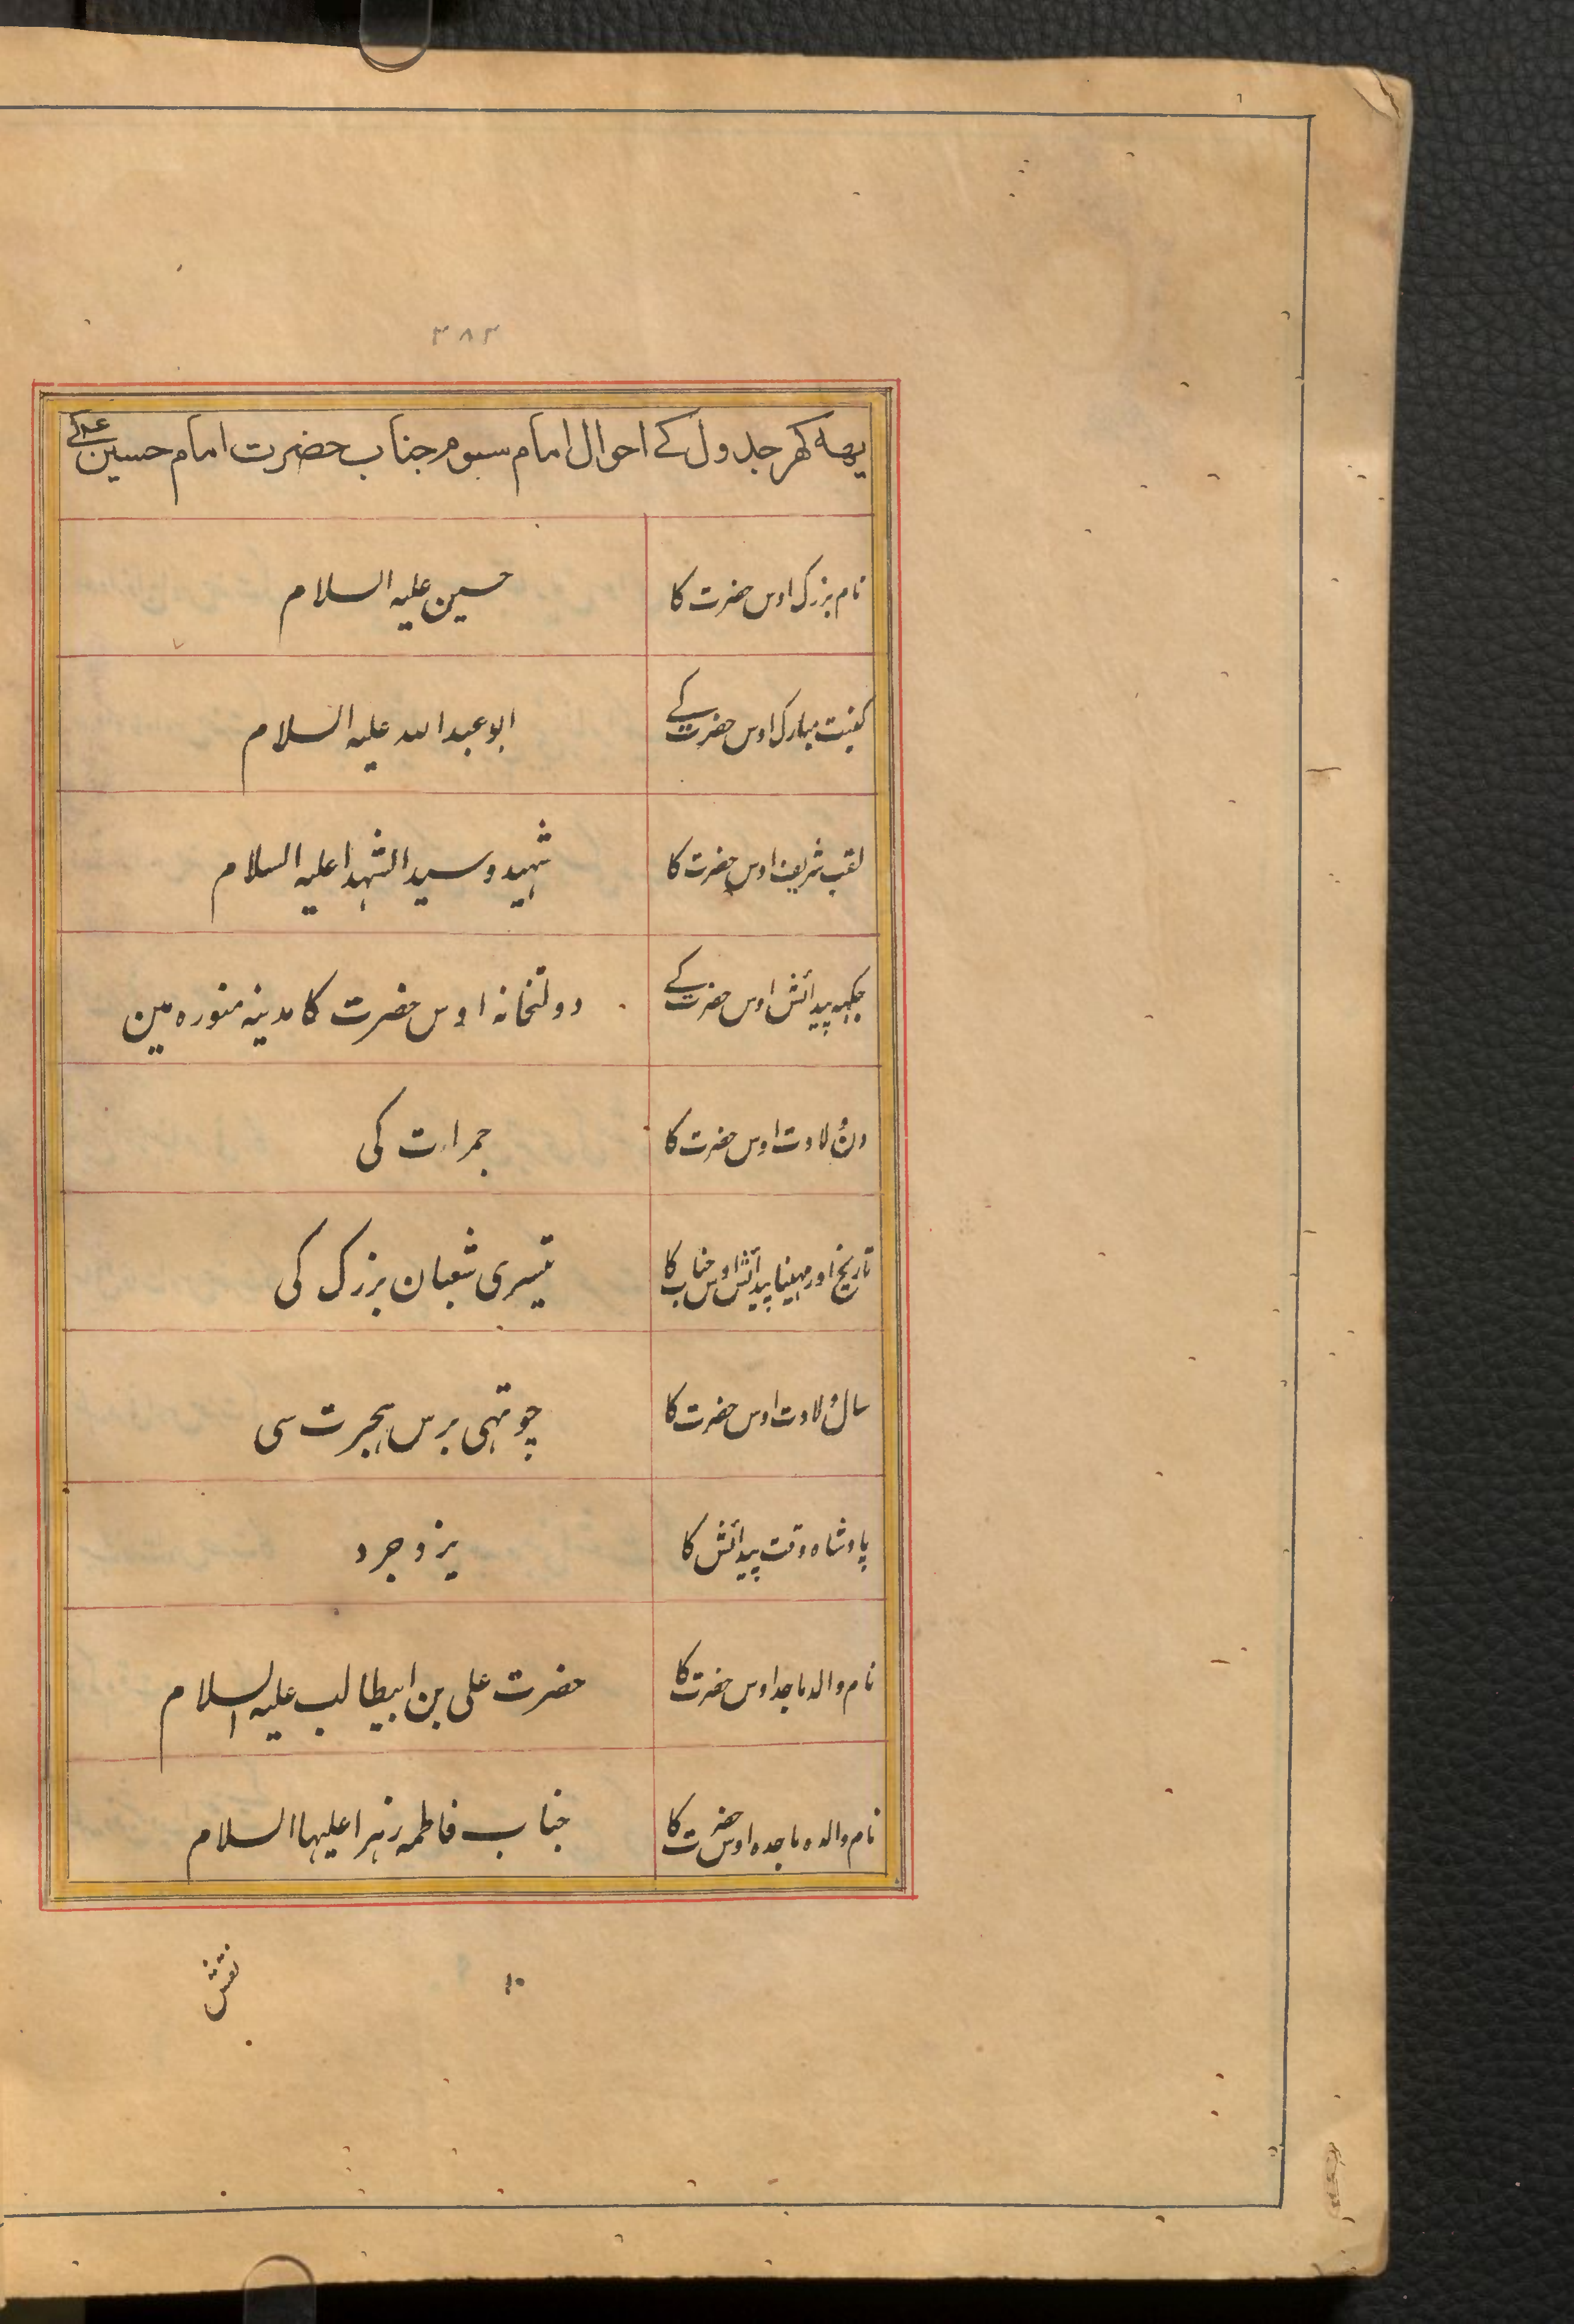 ۳۸۳
یهه کهر جدول کے احوال امام سیوم جناب حضرت امام حسین ع کے
نام بزرک اوس حضرت کا حسین علیه السلام
کنیت مبارک اوس حضرت کے ابو عبدالله علیه السلام
لقب شریف اوس حضرت کا شہید و سید الشہدا علیه السلام
جکہه پیدائش اوس حضرت کے دولتخانہ اوس حضرت کا مدینہ منورہ مین
دن ولادت اوس حضرت کا جمرات کی
تاریخ اور مہینا پیدائش اوس جناب کا تیسری شعبان بزرک کی
سال ولادت اوس حضرت کا چوتہی برس ہجرت سی
پادشاہ وقت پیدائش کا یزدجرد
نام والد ماجد اوس حضرت کا حضرت علی بن ابیطالب علیه السلام
نام والدہ ماجدہ اوس حضرت کا جناب فاطمہ زہرا علیہا السلام
۱۰
نقش